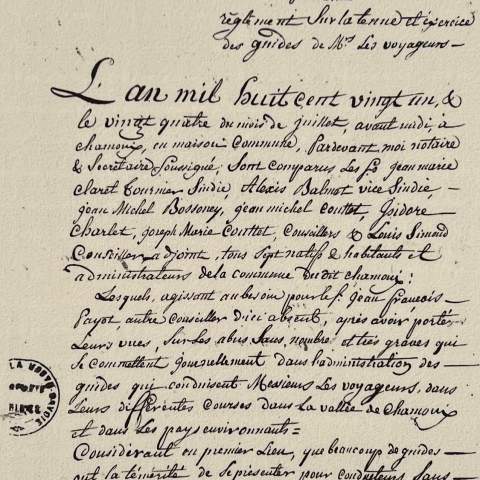 règlement sur la tenue et exercice
des guides de Mrs Les voyageurs —
L'an mil huit cent vingt un, &
le vingt quatre du mois de juillet, avant midi, à
chamonix, en maison Commune, Pardevant moi notaire
& Secretaire soussigné; sont comparus Les ss. jean marie
Claret tournier Sindic, Alexis Balmat vice Sindic, —
jean Michel Bossoney, jean michel Couttet, Isidore
Charlet, joseph Marie Couttet, Conseillers & Louis Simond
Conseiller adjoint, tous sept natifs & habitants et
administrateurs de la commune du dit chamonix:
Lesquels, agissant au besoin pour le s. jean françois —
Payot, autre Conseiller d'ici absent, après avoir portés
Leurs vues Sur Les abus Sans nombre et très graves qui
Se commettent journellement dans l'administration des —
guides qui conduisent Messieurs Les voyageurs, dans
Leurs différentes courses dans La vallée de Chamonix
et dans Les pays environnants =
Considérant en premier Lieu, que beaucoup de guides —
ont la témérité de se présenter pour conducteurs, Sans —
LA HAUTE-SAVOIE